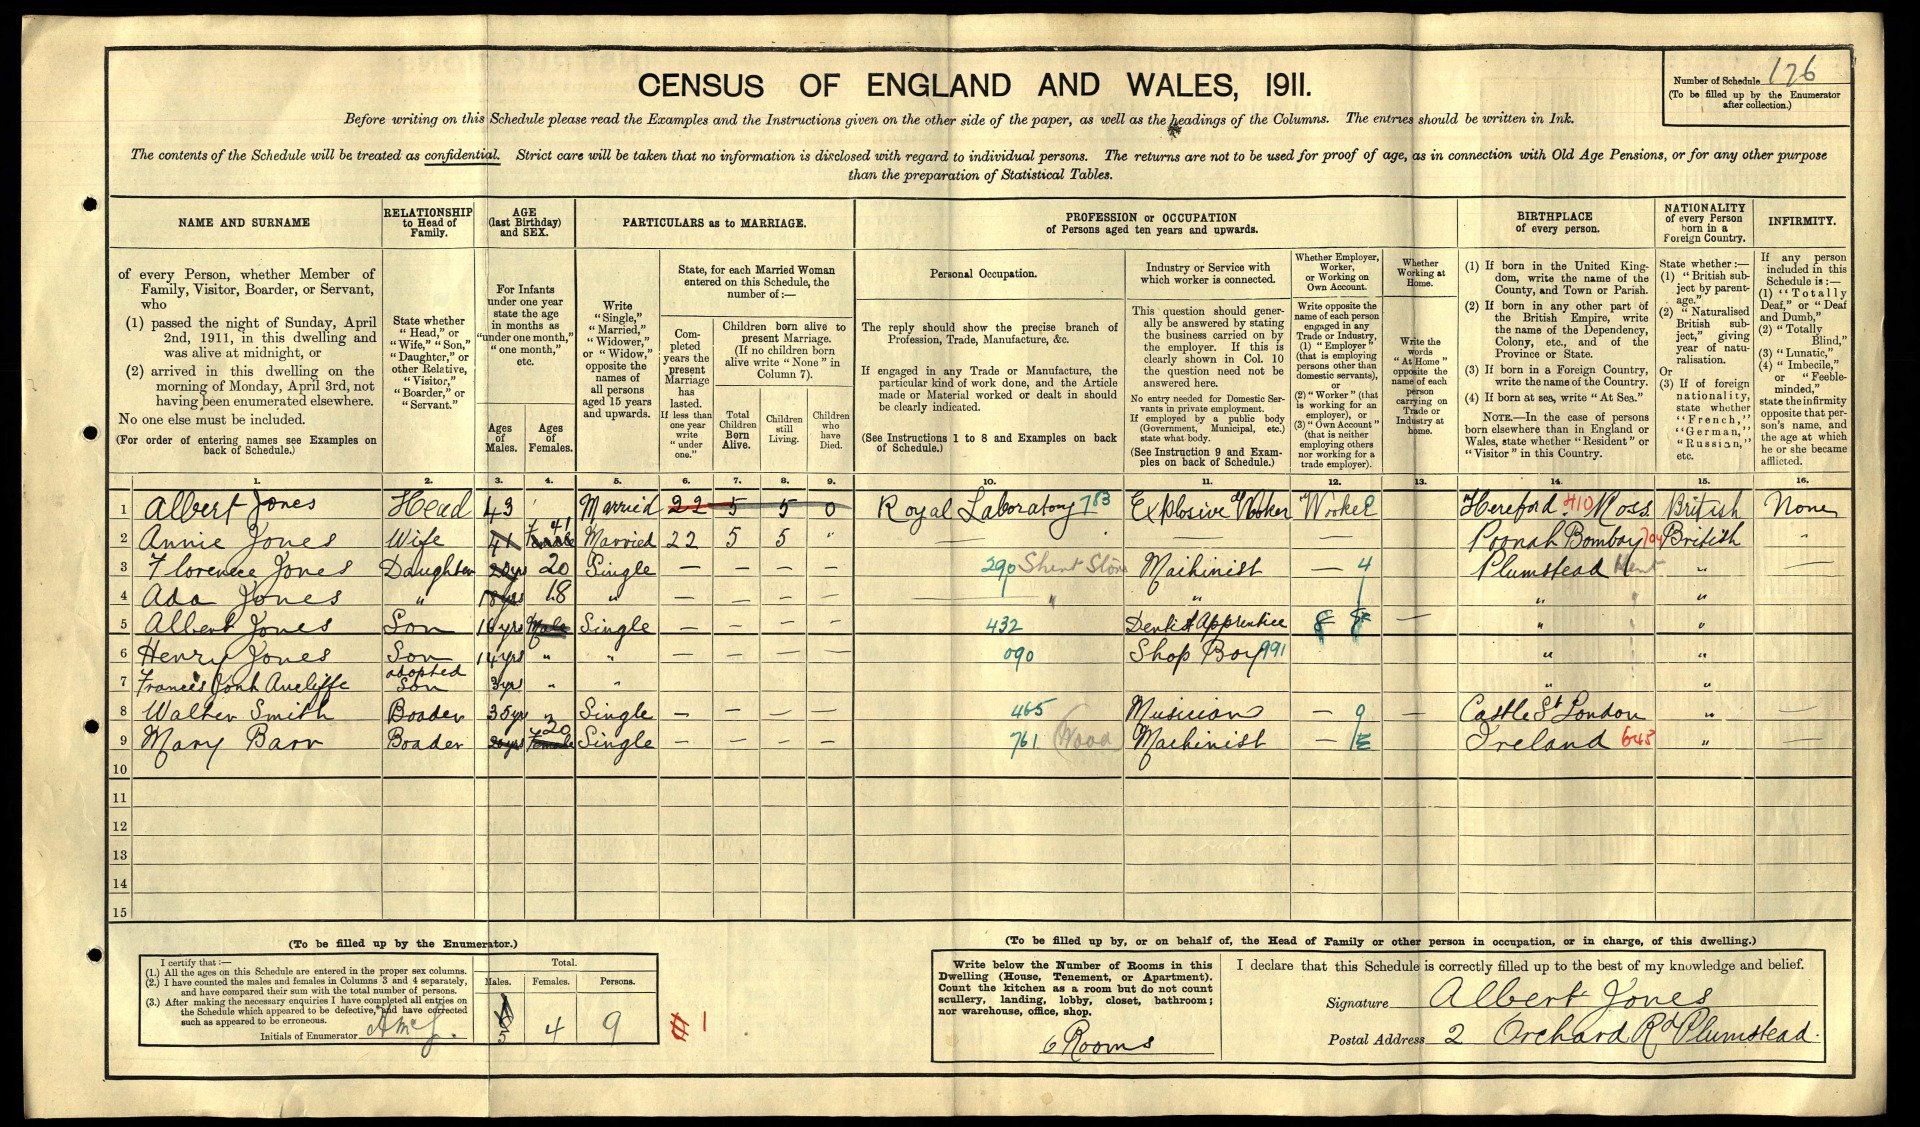 CENSUS OF ENGLAND AND WALES, 1911.
Number of Schedule 176
(To be filled up by the Enumerator after collection.)
Before writing on this Schedule please read the Examples and the Instructions given on the other side of the paper, as well as the headings of the Columns. The entries should be written in Ink.
The contents of the Schedule will be treated as confidential. Strict care will be taken that no information is disclosed with regard to individual persons. The returns are not to be used for proof of age, as in connection with Old Age Pensions, or for any other purpose
than the preparation of Statistical Tables.
NAME AND SURNAME
RELATIONSHIP to Head of Family.
AGE (last Birthday) and SEX.
PARTICULARS as to MARRIAGE.
PROFESSION or OCCUPATION of Persons aged ten years and upwards.
BIRTHPLACE of every person.
NATIONALITY of every Person born in a Foreign Country.
INFIRMITY.
of every Person, whether Member of
Family, Visitor, Boarder, or Servant,
who
(1) passed the night of Sunday, April
2nd, 1911, in this dwelling and
was alive at midnight, or
(2) arrived in this dwelling on the
morning of Monday, April 3rd, not
having been enumerated elsewhere.
No one else must be included.
(For order of entering names see Examples on
back of Schedule.)
State whether
"Head," or
"Wife," "Son,"
"Daughter," or
other Relative,
"Visitor,"
"Boarder," or
"Servant."
For Infants
under one year
state the age
in months as
"under one month,"
"one month,"
etc.
Ages of Males.
Ages of Females.
Write
"Single,"
"Married,"
"Widower,"
or "Widow,"
opposite the
names of
all persons
aged 15 years
and upwards.
State, for each Married Woman
entered on this Schedule, the
number of:—
Completed years the present Marriage has lasted.
If less than one year write "under one."
Children born alive to
present Marriage.
(If no children born
alive write "None" in
Column 7).
Total Children Born Alive.
Children still Living.
Children who have Died.
Personal Occupation.
The reply should show the precise branch of
Profession, Trade, Manufacture, &c.
If engaged in any Trade or Manufacture, the
particular kind of work done, and the Article
made or Material worked or dealt in should
be clearly indicated.
(See Instructions 1 to 8 and Examples on back
of Schedule.)
Industry or Service with
which worker is connected.
This question should gener-
ally be answered by stating
the business carried on by
the employer. If this is
clearly shown in Col. 10
the question need not be
answered here.
No entry needed for Domestic Ser-
vants in private employment.
If employed by a public body
(Government, Municipal, etc.)
state what body.
(See Instruction 9 and Exam-
ples on back of Schedule.)
Whether Employer,
Worker,
or Working on
Own Account.
Write opposite the
name of each person
engaged in any
Trade or Industry,
(1) "Employer"
(that is employing
persons other than
domestic servants),
or
(2) "Worker" (that
is working for an
employer), or
(3) "Own Account"
(that is neither
employing others
nor working for a
trade employer).
Whether
Working at
Home.
Write the
words
"At Home"
opposite the
name of each
person
carrying on
Trade or
Industry at
home.
(1) If born in the United King-
dom, write the name of the
County, and Town or Parish.
(2) If born in any other part of
the British Empire, write
the name of the Dependency,
Colony, etc., and of the
Province or State.
(3) If born in a Foreign Country,
write the name of the Country.
(4) If born at sea, write "At Sea."
NOTE.—In the case of persons
born elsewhere than in England or
Wales, state whether "Resident" or
"Visitor" in this Country.
State whether:—
(1) "British sub-
ject by parent-
age."
(2) "Naturalised
British sub-
ject," giving
year of natu-
ralisation.
Or
(3) If of foreign
nationality,
state whether
"French,"
"German,"
"Russian,"
etc.
If any person
included in this
Schedule is:—
(1) "Totally
Deaf," or "Deaf
and Dumb,"
(2) "Totally
Blind,"
(3) "Lunatic,"
(4) "Imbecile,"
or "Feeble-
minded,"
state the infirmity
opposite that per-
son's name, and
the age at which
he or she became
afflicted.
1. 2. 3. 4. 5. 6. 7. 8. 9. 10. 11. 12. 13. 14. 15. 16.
1 Albert Jones Head 43 Married 22 5 5 0 Royal Laboratory 783 Explosive Wooker Wooker Hereford 410 Ross British None
2 Annie Jones Wife 41 Female 41 Married 22 5 5 " — — — Poonah Bombay British "
3 Florence Jones Daughter 20yrs 20 Single — — — — 290 Machinist — 4 Plumstead Kent " —
4 Ada Jones " 18yrs 18 " — — — — " " " "
5 Albert Jones Son 16yrs Male Single — — — — 432 Dentist Apprentice — " "
6 Henry Jones Son 14yrs " " — — — — 090 Shop Boy 991 " "
7 Frances adopted Son 3yrs " " " "
8 Walter Smith Boader 35yr " Single — — — — 465 Musician — 9 — Castle St London " —
9 Mary Barr Boader 20yrs Female 20 Single — — — — 761 (Wood) Machinist — Ireland 645 " —
10
11
12
13
14
15
(To be filled up by the Enumerator.)
I certify that:—
(1.) All the ages on this Schedule are entered in the proper sex columns.
(2.) I have counted the males and females in Columns 3 and 4 separately,
and have compared their sum with the total number of persons.
(3.) After making the necessary enquiries I have completed all entries on
the Schedule which appeared to be defective, and have corrected
such as appeared to be erroneous.
Initials of Enumerator
Total.
Males. Females. Persons.
5 4 9
1
(To be filled up by, or on behalf of, the Head of Family or other person in occupation, or in charge, of this dwelling.)
Write below the Number of Rooms in this
Dwelling (House, Tenement, or Apartment).
Count the kitchen as a room but do not count
scullery, landing, lobby, closet, bathroom;
nor warehouse, office, shop.
6 Rooms
I declare that this Schedule is correctly filled up to the best of my knowledge and belief.
Signature Albert Jones
Postal Address 2 Orchard Rd Plumstead.